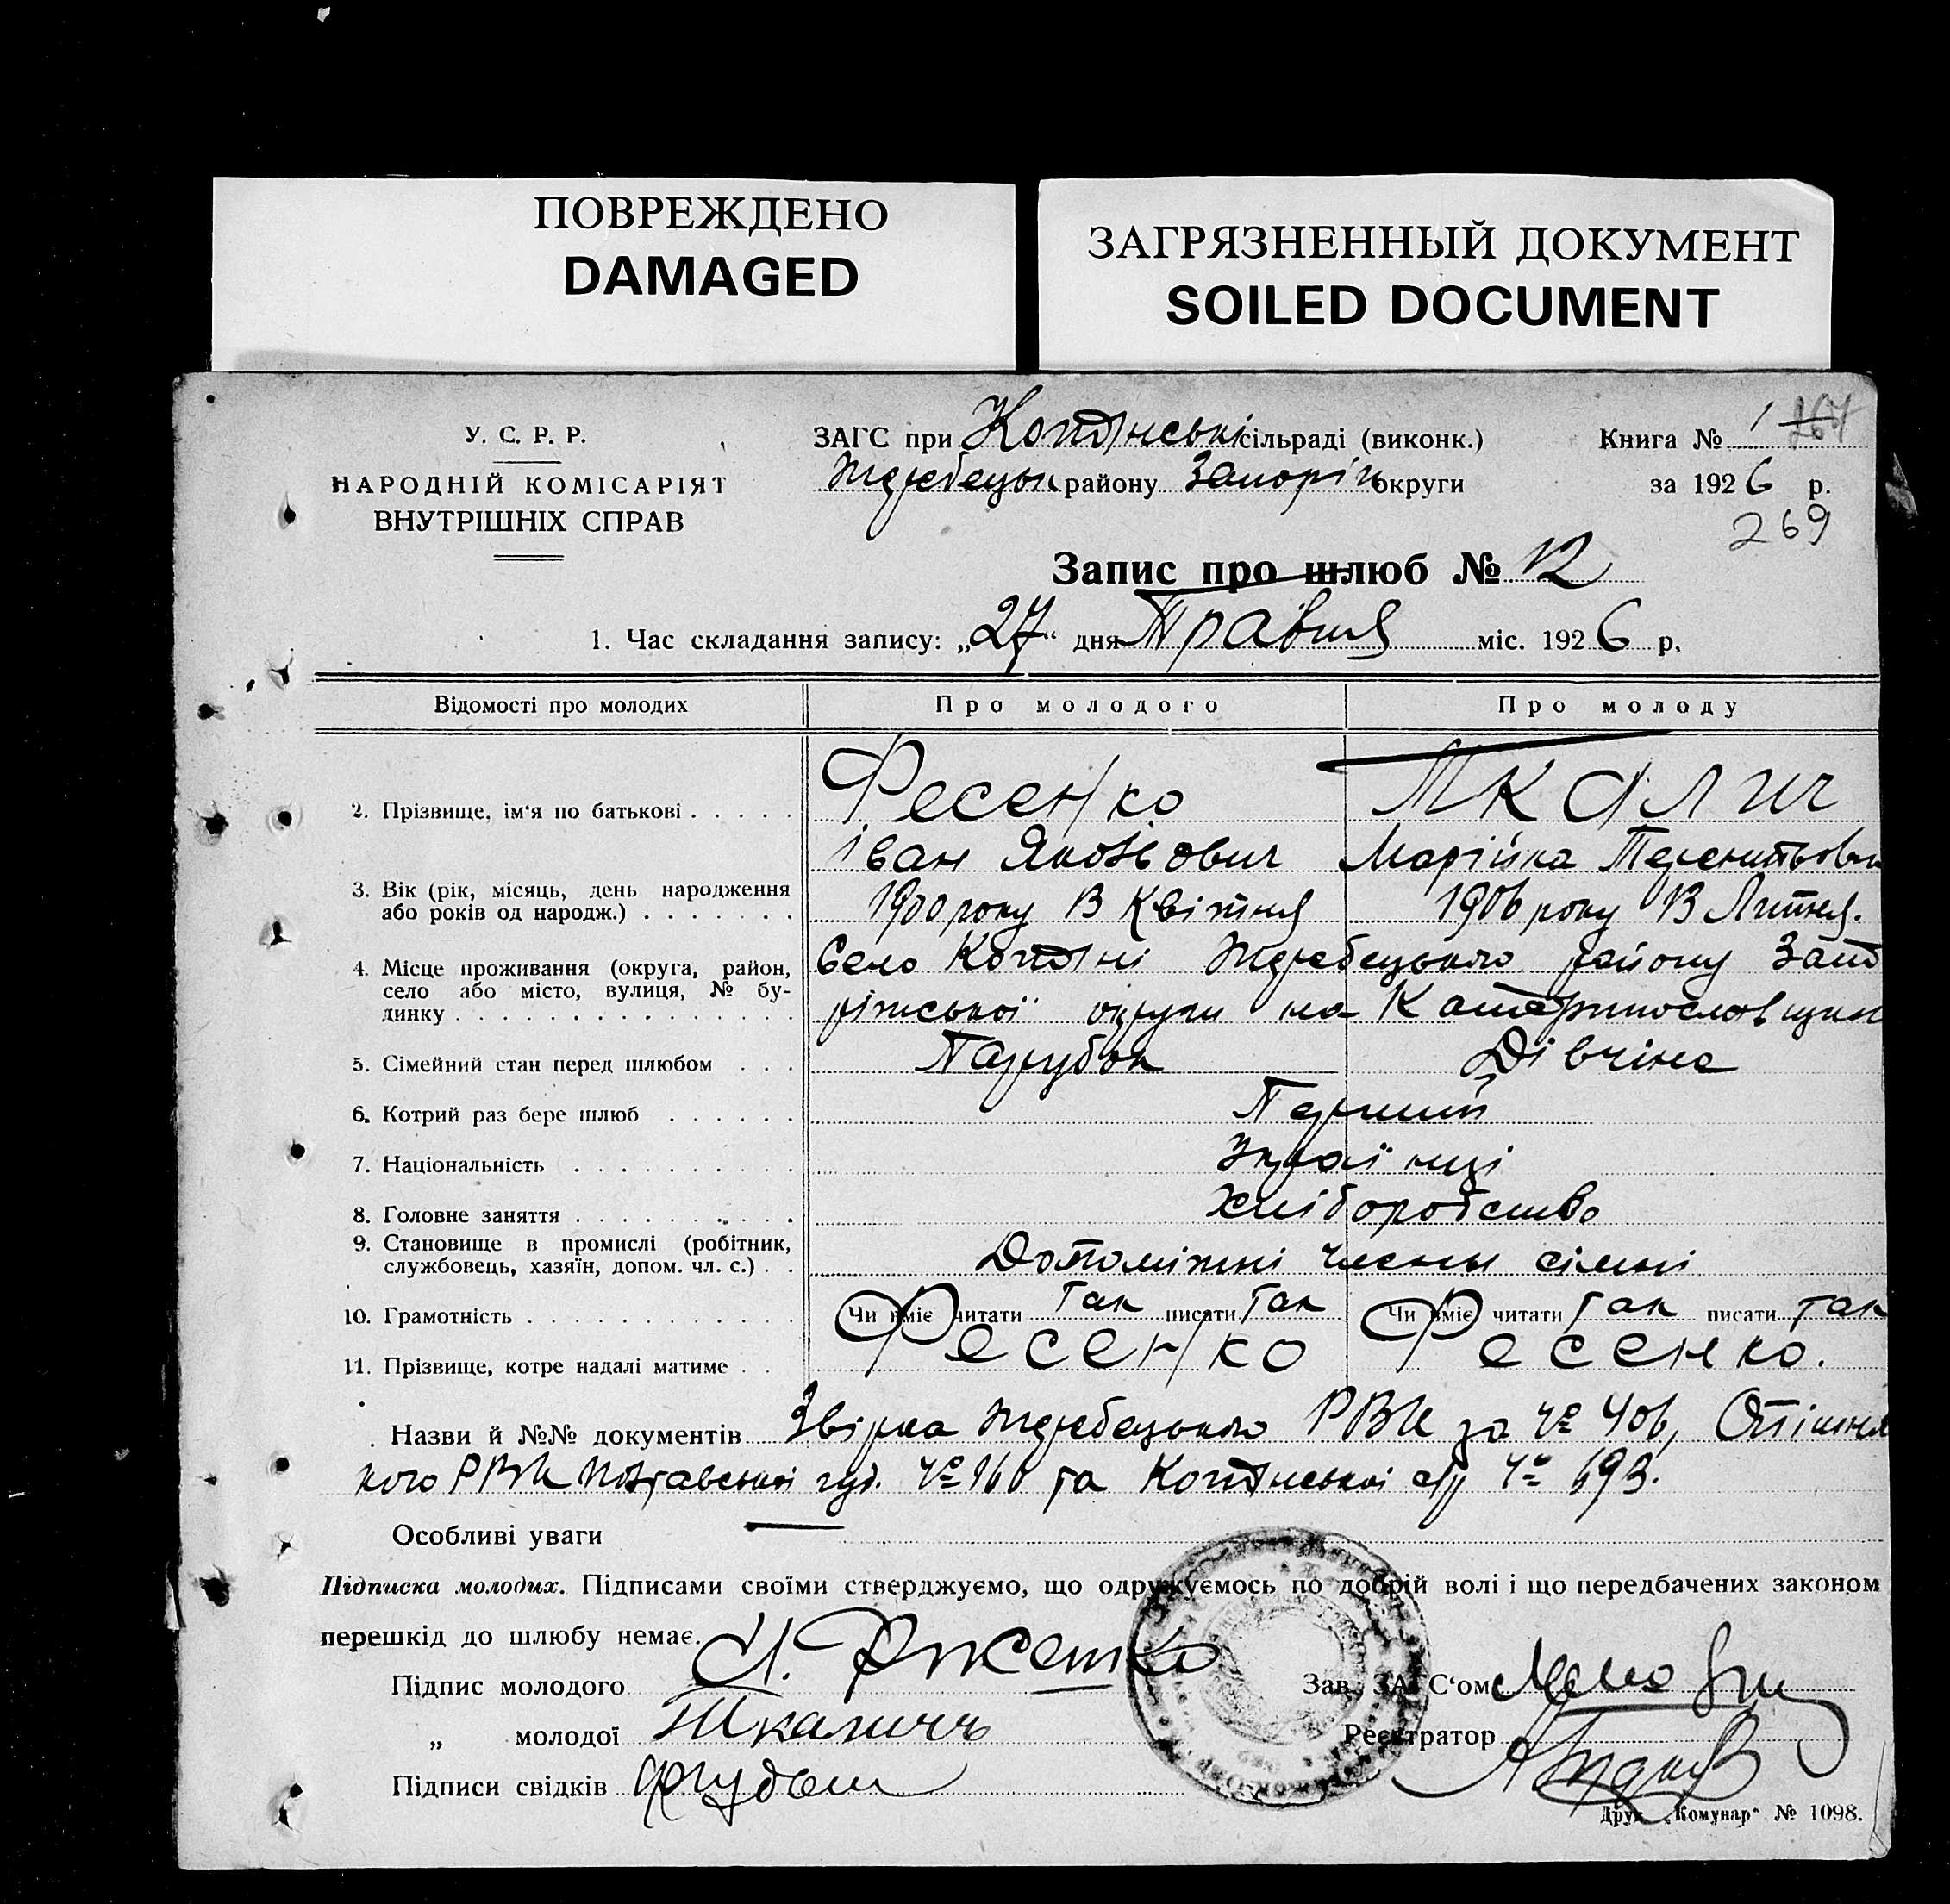 ПОВРЕЖДЕНО
DAMAGED
ЗАГРЯЗНЕННЫЙ ДОКУМЕНТ
SOILED DOCUMENT
У. С. Р. Р.
НАРОДНІЙ КОМІСАРІЯТ
ВНУТРІШНІХ СПРАВ
ЗАГС при Копанські сільраді (виконк.)
Жеребецьк району Запоріж округи
Книга № 1 267
за 1926 р.
269
Запис про шлюб № 12
1. Час складання запису: „27“ дня Травня міс. 1926 р.
Відомості про молодих Про молодого Про молоду
2. Прізвище, ім‘я по батькові Фесенко Ткалич
Іван Якович Марійка Терентьовн
3. Вік (рік, місяць, день народження
або років од народж.) 1900 року 13 Квітня 1906 року 13 Липня.
4. Місце проживання (округа, район,
село або місто, вулиця, № бу-
динку
Село Копані Жеребецького району Запо
ріжської округи на Катеринославщин
5. Сімейний стан перед шлюбом Парубок Дівчина
6. Котрий раз бере шлюб Перший
7. Національність Українці
8. Головне заняття Хліборобство
9. Становище в промислі (робітник,
службовець, хазяїн, допом. чл. с.) Допоміжні члени сімні
10. Грамотність Чи вміє читати так писати так Чи вміє читати так писати так
11. Прізвище, котре надалі матиме Фесенко Фесенко.
Назви й №№ документів Звірка Жеребецького РВК за Ч° 406, Опішнян
кого РВК Полтавської губ. Ч° 160 та Копанської с/р Ч° 693.
Особливі уваги
Підписка молодих. Підписами своїми стверджуємо, що одружуємось по добрій волі і що передбачених законом
перешкід до шлюбу немає.
Підпис молодого И. Фисенко
„ молодої Ткаличъ
Підписи свідків
Зав. ЗАГС‘ом
Реєстратор
Друк. „Комунар“ № 1098.